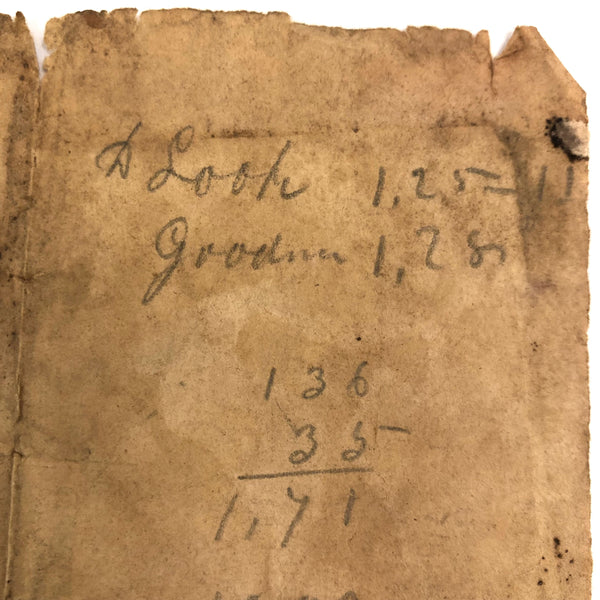 D Look 1,25=11
Goodnu 1,25
136
35
1,71